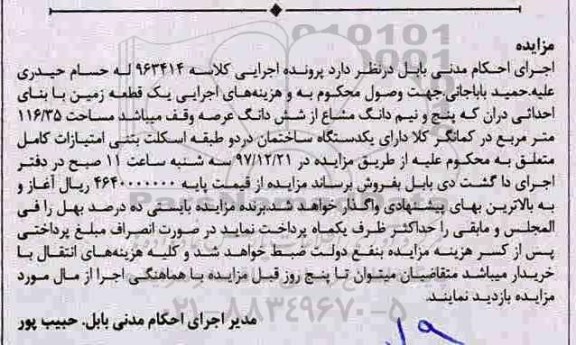 مزایده
اجرای احکام مدنی بابل درنظر دارد پرونده اجرایی کلاسه ۹۶۳۴۱۴ له حسام حیدری
علیه.حمید باباجانی.جهت وصول محکوم به و هزینه‌های اجرایی یک قطعه زمین با بنای
احداثی دران که پنج و نیم دانگ مشاع از شش دانگ عرصه وقف میباشد مساحت ۱۱۶/۳۵
متر مربع در کمانگر کلا دارای یکدستگاه ساختمان دردو طبقه اسکلت بتنی امتیازات کامل
متعلق به محکوم علیه از طریق مزایده در ۹۷/۱۲/۲۱ سه شنبه ساعت ۱۱ صبح در دفتر
اجرای دا گشت دی بابل بفروش برساند مزایده از قیمت پایه ۴۶۴۰۰۰۰۰۰۰ ریال آغاز و
به بالاترین بهای پیشنهادی واگذار خواهد شد.برنده مزایده بایستی ده درصد بهل را فی
المجلس و مابقی را حداکثر ظرف یکماه پرداخت نماید در صورت انصراف مبلغ پرداختی
پس از کسر هزینه مزایده بنفع دولت ضبط خواهد شد و کلیه هزینه‌های انتقال با
خریدار میباشد متقاضیان میتوان تا پنج روز قبل مزایده با هماهنگی اجرا از مال مورد
مزایده بازدید نمایند.
۰۲۱-۸۸۳۴۹۶۷۰-۵
مدیر اجرای احکام مدنی بابل. حبیب پور